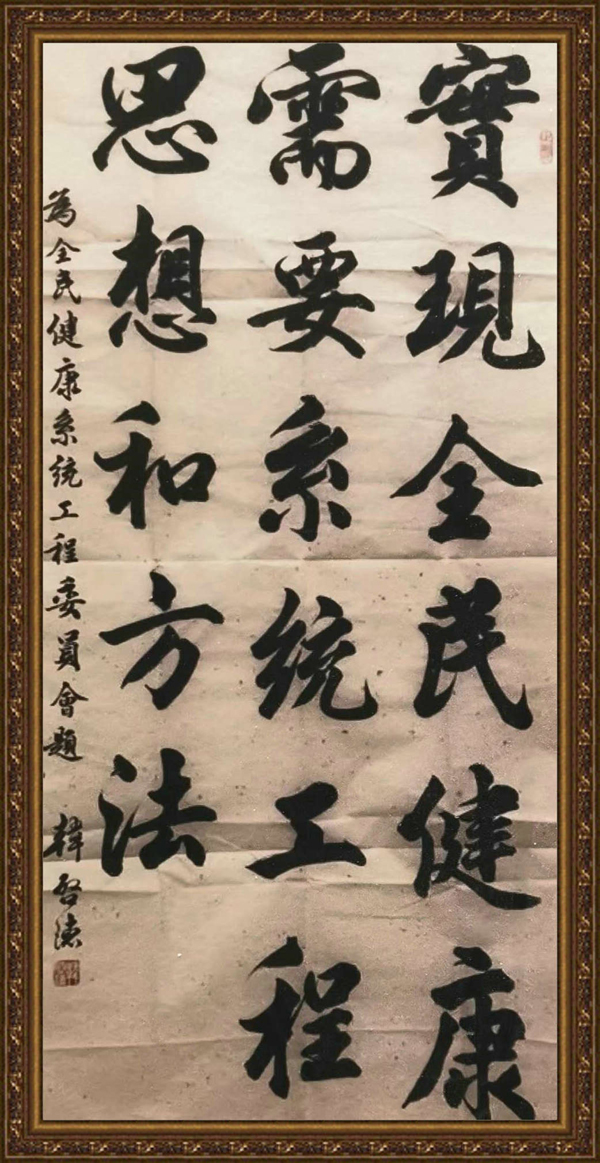 實現全民健康
需要系統工程
思想和方法
為全民健康系統工程委員會題
韓啓德